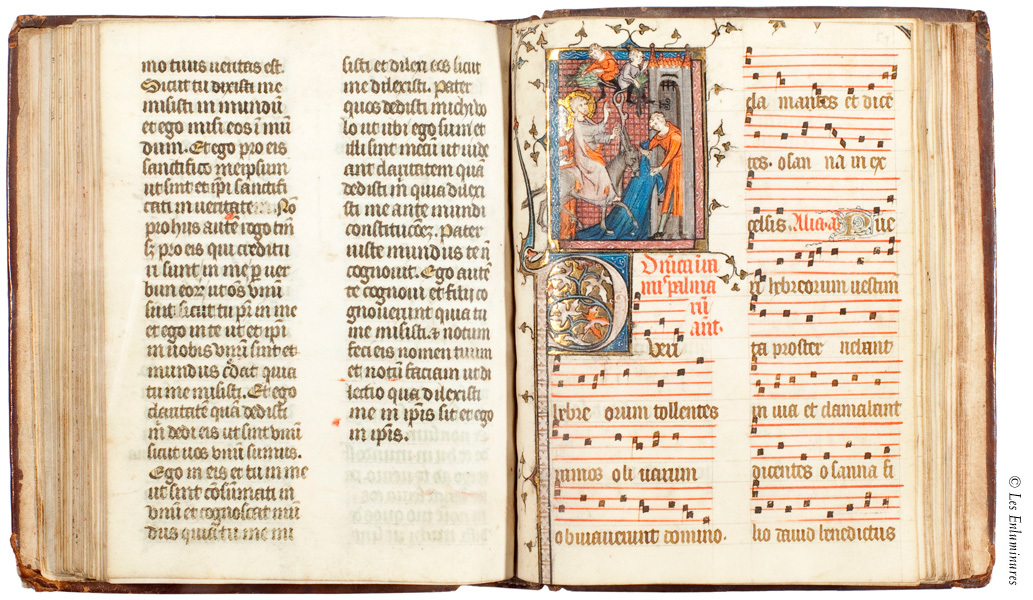 mo tuus ueritas est.
Sicut tu dixisti me
misisti in mundū
et ego misi eos ī mū
dum. Et ego pro eis
sanctifico meipsum
ut sint et ip̄i sanctifi
cati in ueritate. Nō
pro hijs autē rogo tm̄
s; pro eis qui credituͥ
ri sunt in me p uer
bum eorꝝ ut oēs unū
sint sicut tu pr̄ in me
et ego in te ut et ip̄i
in nobis unū sint et
mundus c̄dat quia
tu me misisti. Et ego
claritatē quā dedisti
m̄ dedi eis ut sint unū
sicut nos unū sumus.
Ego in eis et tu in me
ut sint cōsumati in
unū et cognoscat mū
dus quia tu me mi
sisti et dilexi eos sicut
me dilexisti. Pater
quos dedisti michi uo
lo ut ubi ego sum et
illi sint mecū ut uide
ant claritatem quā
dedisti m̄ quia dilexi
sti me ante mundi
constitucōez. Pater
iuste mundus te n̄
cognouit. Ego autē
te cognoui et hij co
gnouerunt quia tu
me misisti. & notum
feci eis nomen tuum
et notū faciam ut di
lectio qua dilexisti
me in ip̄is sit et ego
in ip̄is.
Dn̄ica in
ramis palma
rū
ant.
Pueri
hebre orum tollentes
ramos oli uarum
obuiauerunt domino.
cla mantes et dicē
tes. osan na in ex
celsis. Alia. a. Pue
ri hebreorum uestim
ta proster nebant
in uia et clamabant
dicentes osanna fi
lio dauid benedictus
© Les Enluminures